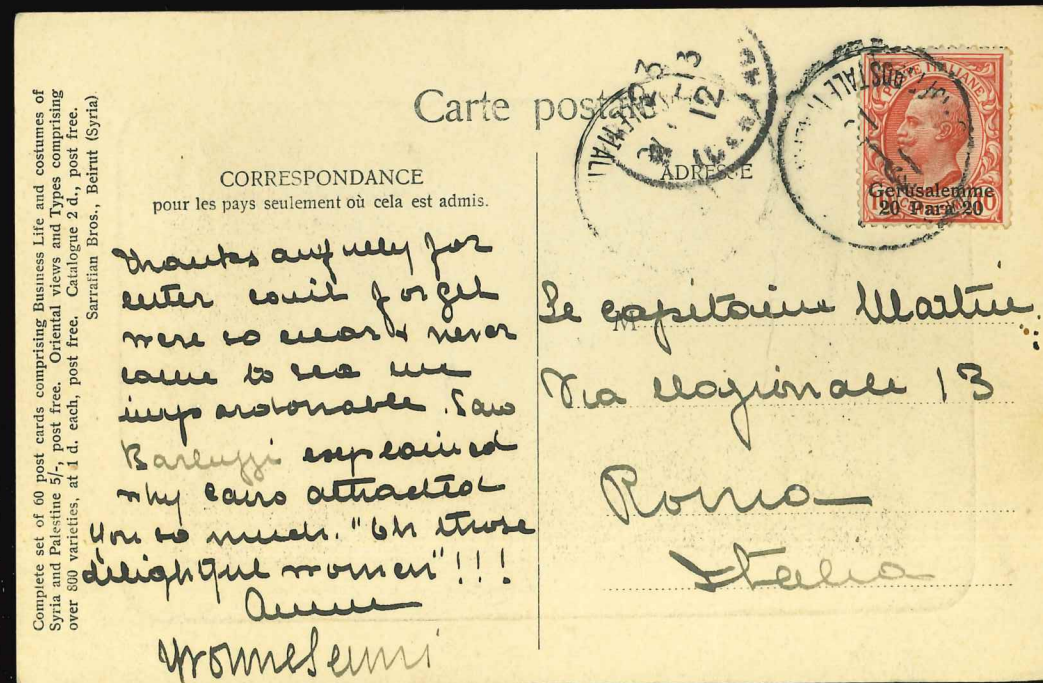 Complete set of 60 post cards comprising Business Life and costumes of
Syria and Palestine 5/-, post free. Oriental views and Types comprising
over 800 varieties, at 1 d. each, post free. Catalogue 2 d., post free.
Sarrafian Bros., Beirut (Syria)
Carte postale
CORRESPONDANCE
pour les pays seulement où cela est admis.
Thanks awfully for
letter couldn't forget
were so near & never
came to see me
unpardonable. Saw
Barluzzi explained
why Cairo attracted
you so much. "Oh those
delightful women"!!!
Yvonne
ADRESSE
M
Le capitaine Martin
Via Nazionale 13
Roma
Italia
POSTE ITALIANE
Gerusalemme
20 Para 20